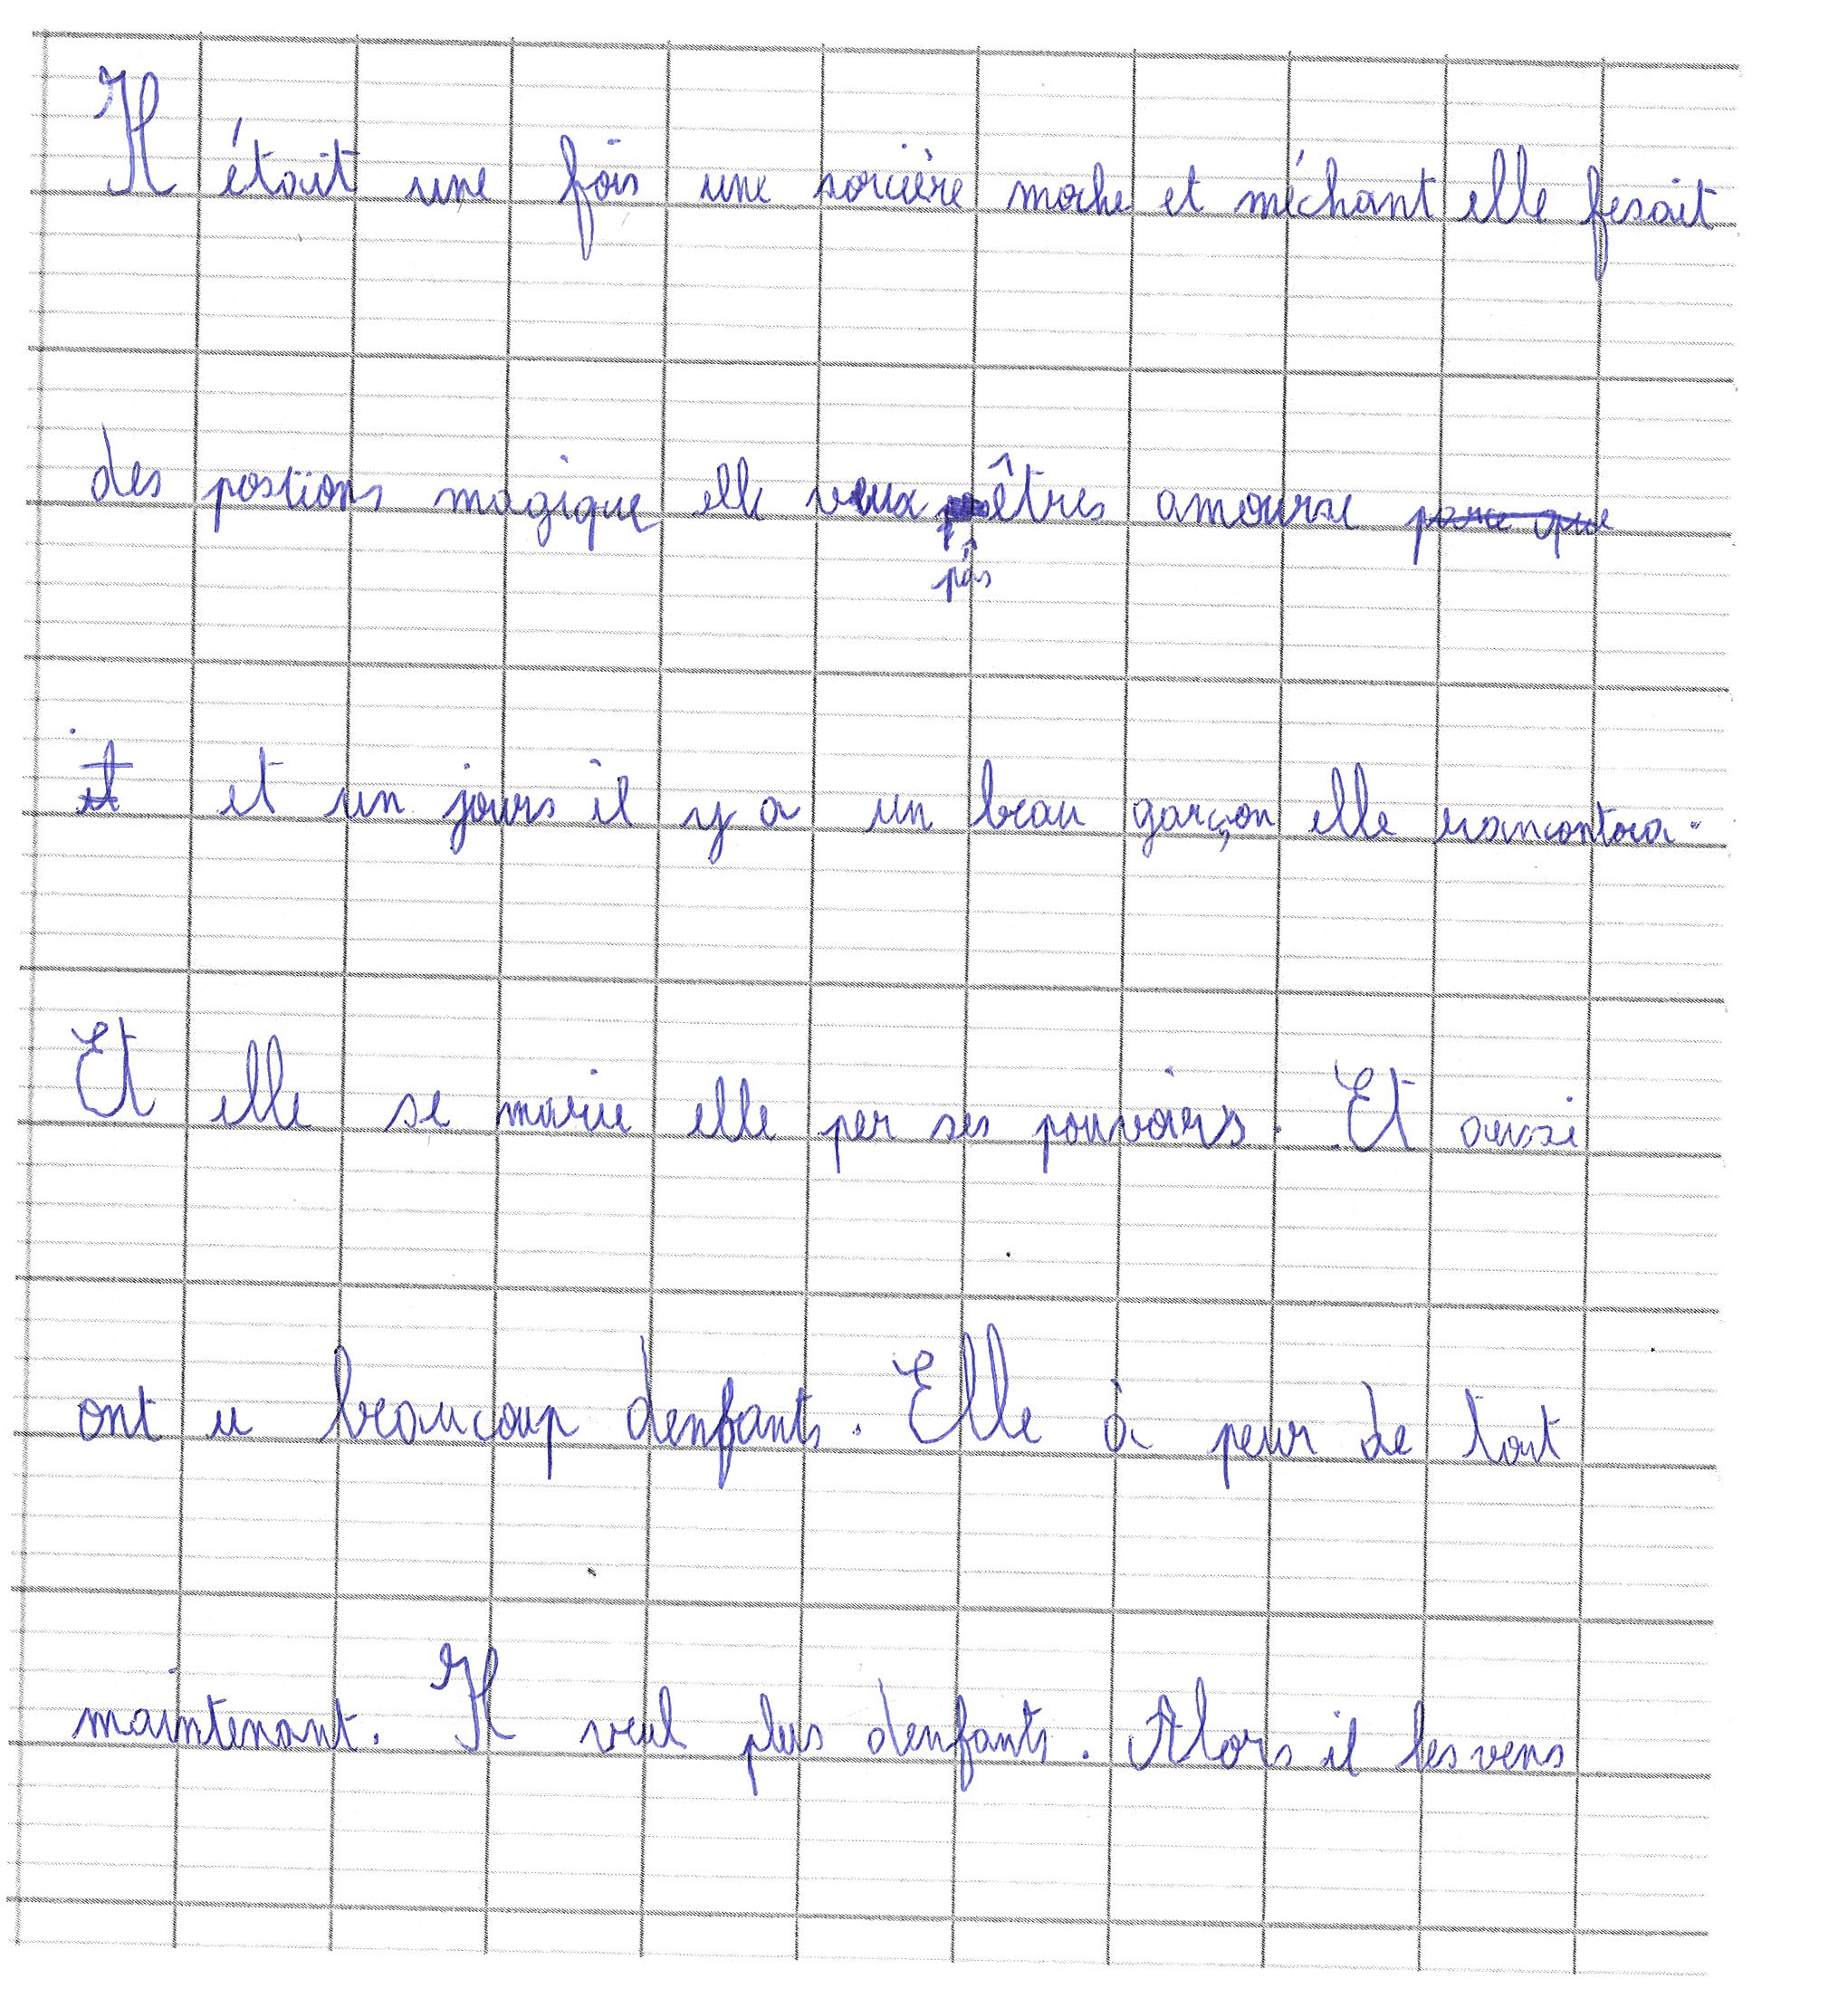 Il était une fois une sorcière moche et méchant elle fesait
des postions magique elle veux pas êtres amourse parce que
il et un jours il y a un beau garçon elle rancontra.
Et elle se marie elle per ses pouvoirs. Et aussi
ont u beaucoup denfants. Elle à peur de tout
maintenant. Il veul plus denfants. Alors il les vens